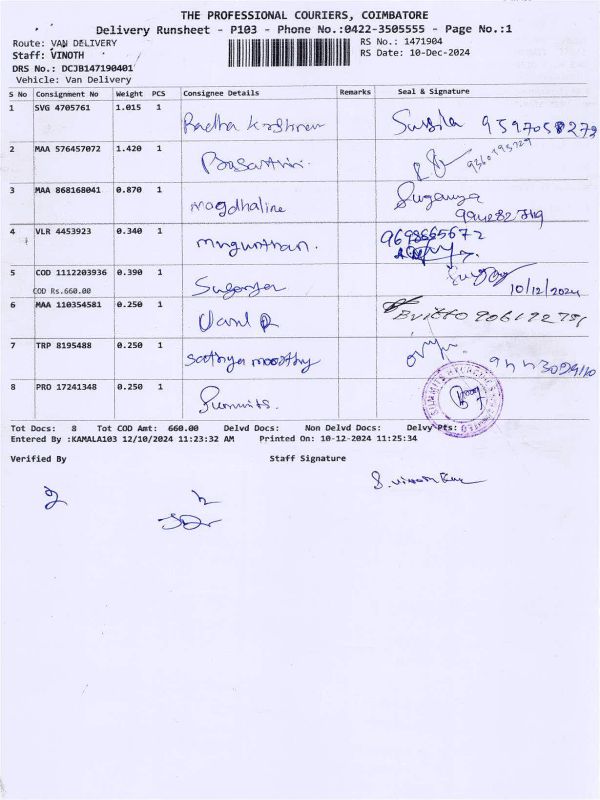 THE PROFESSIONAL COURIERS, COIMBATORE
Delivery Runsheet - P103 - Phone No.:0422-3505555 - Page No.:1
Route: VAN DELIVERY
RS No.: 1471904
Staff: VINOTH
RS Date: 10-Dec-2024
DRS No.: DCJB147190401
Vehicle: Van Delivery
S No Consignment No Weight PCS Consignee Details Remarks Seal & Signature
1 SVG 4705761 1.015 1 Radha Krishnan Susila
2 MAA 576457072 1.420 1
3 MAA 868168041 0.870 1 Magdhaline Suganya
4 VLR 4453923 0.340 1 9698665672
5 COD 1112203936 0.390 1 Suganya
COD Rs.660.00 10/12/2024
6 MAA 110354581 0.250 1
7 TRP 8195488 0.250 1 Sathya moorthy
8 PRO 17241348 0.250 1
Tot Docs: 8 Tot COD Amt: 660.00 Delvd Docs: Non Delvd Docs: Delvy Pts:
Entered By :KAMALA103 12/10/2024 11:23:32 AM Printed On: 10-12-2024 11:25:34
Verified By Staff Signature